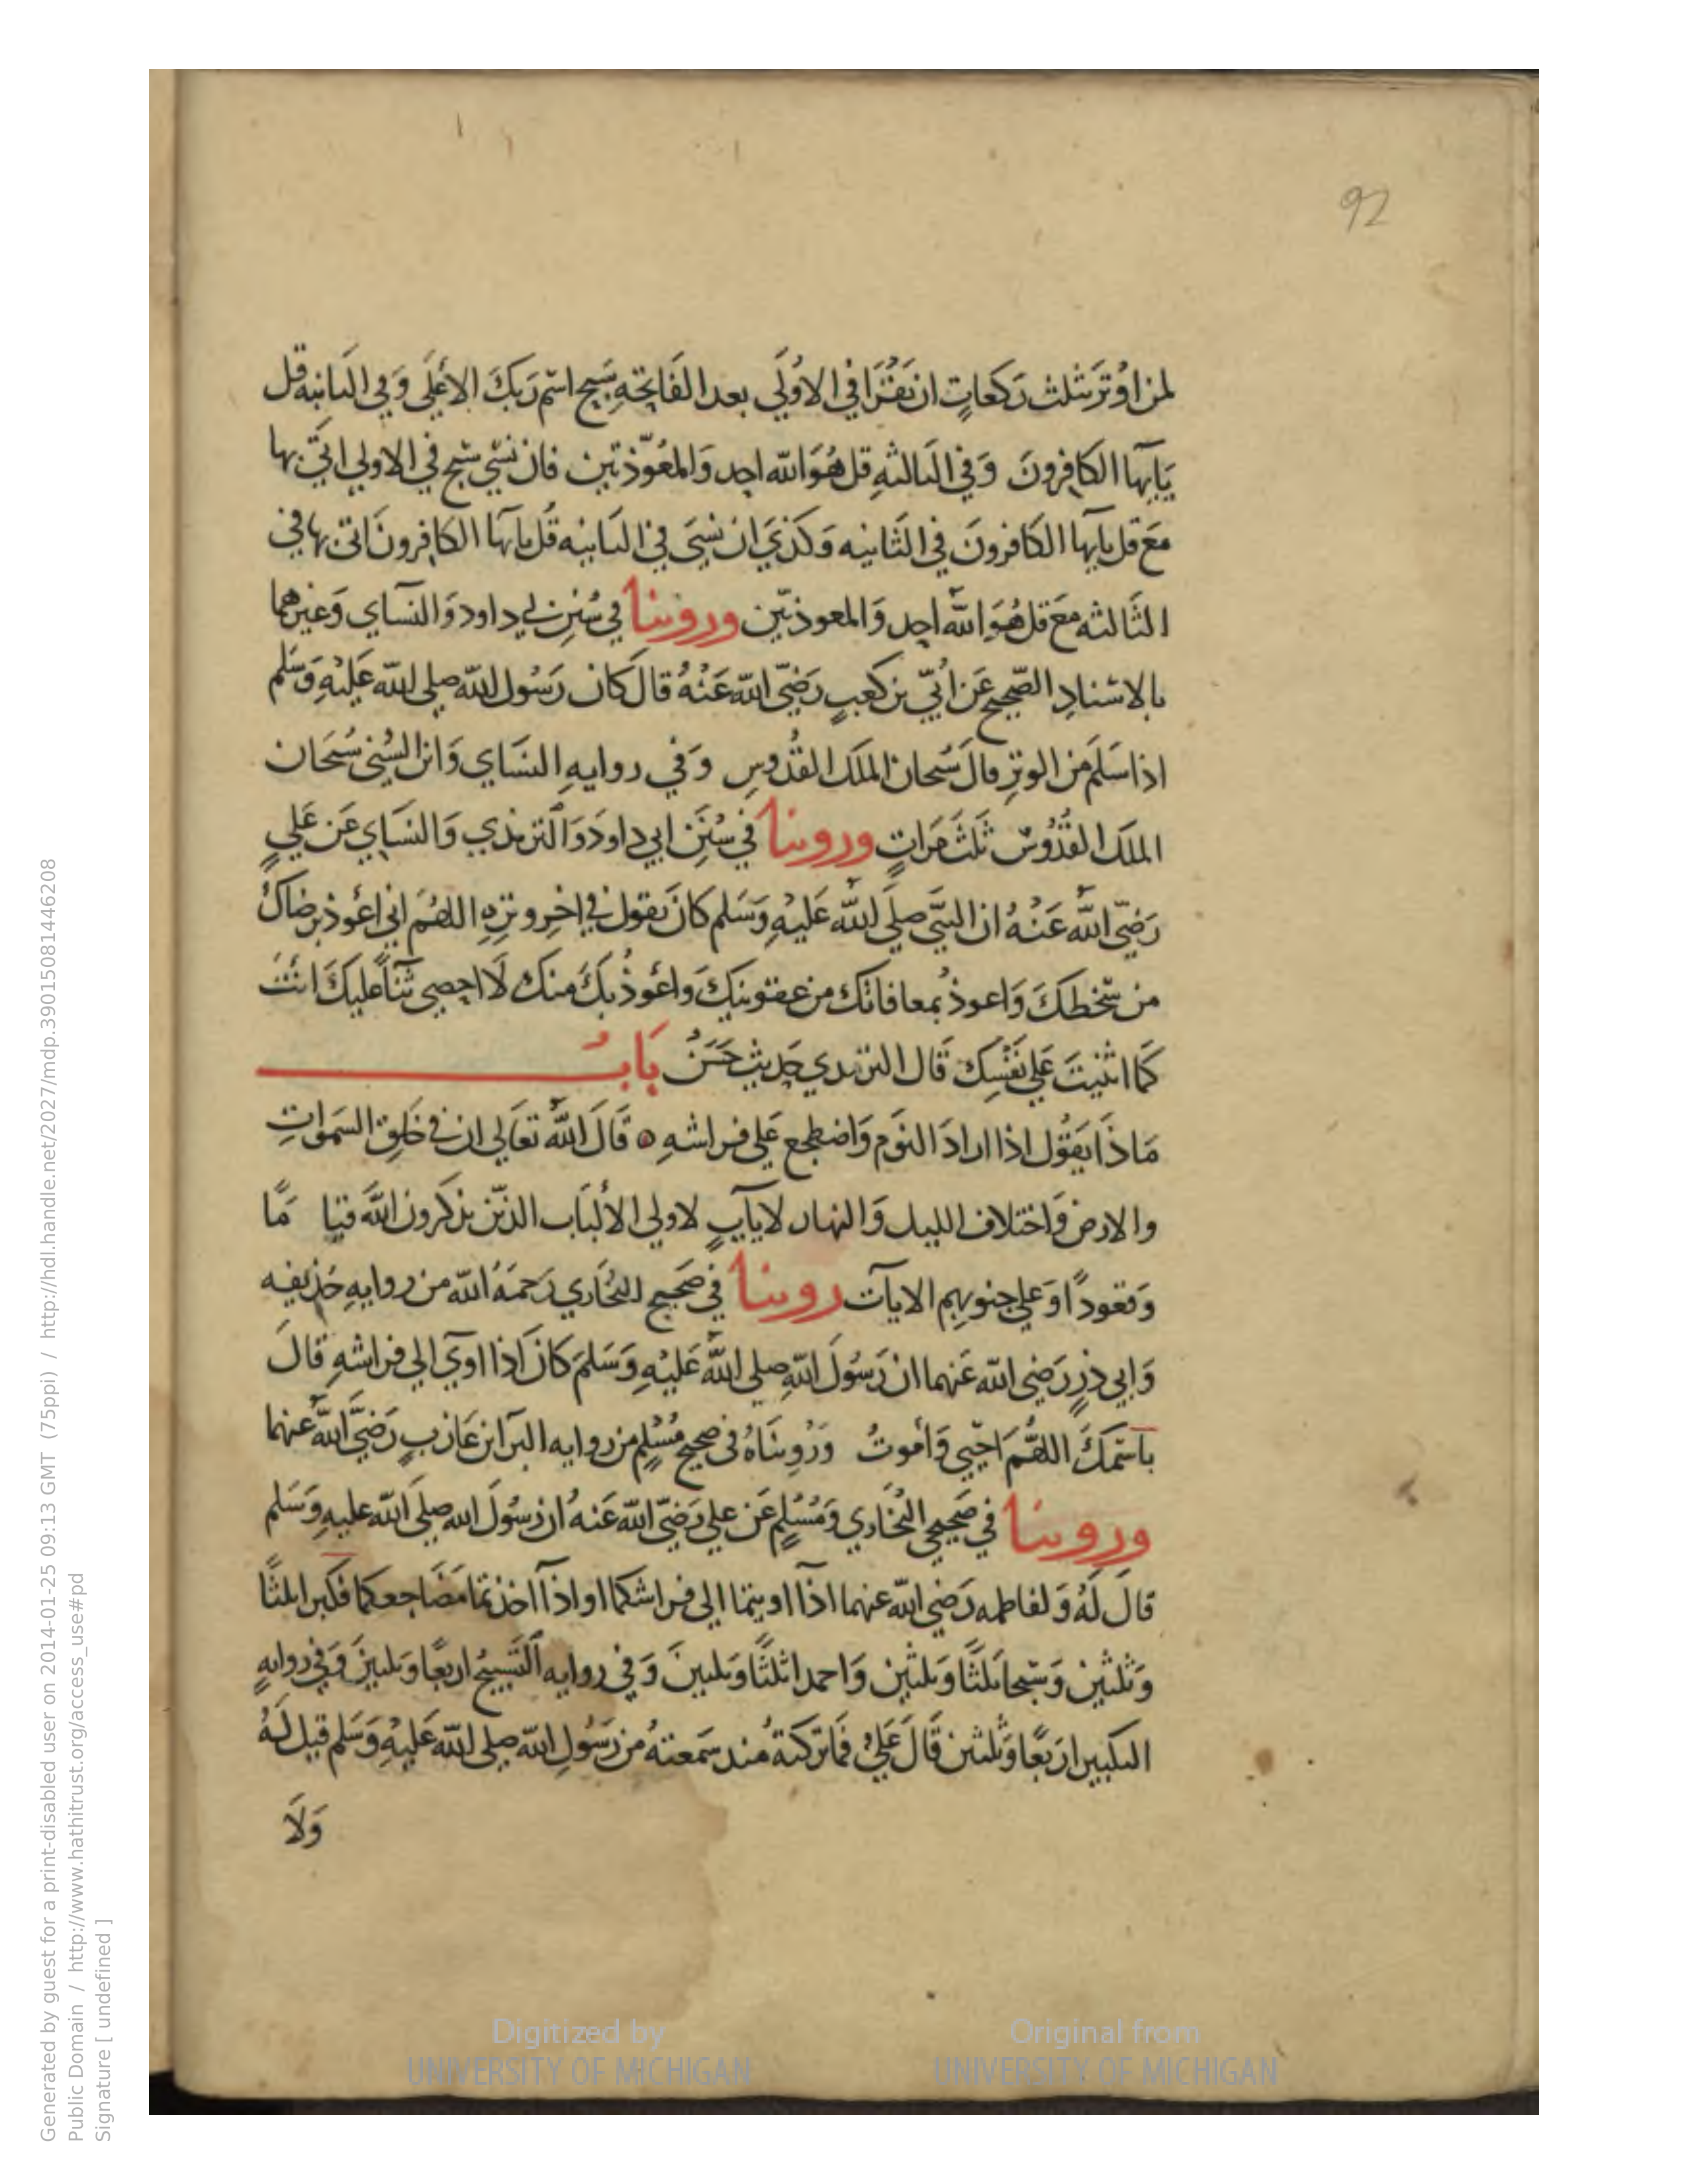 92
لمن اوْتَرَ بثلث رَكعاتٍ ان يَقْرَا في الاوُلَي بعد الفَاتِحَةِ سَبح اسْم رَبكَ الاعْلَي وَفي الثانيه قل
يَايها الكَافِرونَ وَفي الثالثهِ قل هُوَ الله احد وَالمعَوّذتين فان نسي سبح في الاولي اتَي بها
مَعَ قل يايها الكافرونَ في الثَانيه وَكَذي ان نسِيَ في الثانيه قُل يايها الكافرونَ اتى بها في
الثَالثه مَعَ قل هُوَ اللّٰه احد وَالمعوذتين وروينا في سُنن ابي داود وَالنسَاي وَغيرهما
بالاسْنادِ الصَحيح عَن ابُيّ بن كَعبٍ رَضيَ الله عَنْهُ قالَ كَان رَسُول الله صلى الله عَليْهِ وَسَلم
اذا سَلمَ منَ الوترِ قالَ سُبحان الملك القدُوسِ وَفي روايهِ النسَاي وَابن السُني سُبحَان
الملك القدُوس ثَلثَ مَراتٍ وروينا في سُنَن ابي داودَ وَالترمذي وَالنسَاي عَن عَليٍ
رَضيَ اللّٰه عَنْهُ ان النبيَ صلي اللّٰه عَليْهِ وَسَلم كانَ يقول في اخِر وترهِ اللهُمَ اني اعُوذ برضاكَ
من سخطكَ وَاعوذ بمعافاتك من عقوبتِكَ واعُوذُ بكَ منكَ لَا احصي ثناً عليكَ انتَ
كمَا اثنيتَ عَلي نَفْسِك قَال الترمدي حَديث حَسَنُ بَابُ
مَاذَا يَقوُل اذا ارادَ النوَم وَاضطجع عَلي فراشهِ ٥ قَالَ اللّٰه تعَالي ان في خَلق السَموَاتِ
والارض وَاختلاف الليل وَالنهار لاياتٍ لاولي الألبَاب الذين يذكرونَ اللّٰهَ قيا مًا
وَقعوداً وَعلي جنوبهم الايات روينا في صَحيح البُخَاري رَحمَهُ الله من روايهِ حُذيفه
وَابي ذرٍ رَضي الله عَنهما ان رَسُولَ اللهِ صلى اللّٰه عَليْهِ وَسَلمَ كانَ اذا اوي الي فراشهِ قالَ
باسْمكَ اللهُمَ احْيي وَامُوتُ وَرُوِينَاهُ في صحيح مُسْلمٍ من روايه البرَا ابن عَازبٍ رَضيَ اللّٰه عنهما
وروينا في صَحيحي البُخَاري وَمُسْلمٍ عَن علي رَضيَ الله عَنهُ ان رَسُولَ الله صلي الله عليهِ وَسَلم
قالَ لَهُ وَلفاطمه رَضي الله عنهما اذا اويتما الي فراشكما او اذا اخذتما مَضَاجعكما فكبرا ثلثًا
وَثلثين وَسبحا ثلثًا وَثلثين وَاحمدا ثلثًا وَثلثينَ وَفي روايه التَسبيحُ اربعًا وَثلثينَ وَفي روايهٍ
التكبير اربَعًا وَثلثين قَالَ عَليٌ فَما تركتهُ منذ سَمعتهُ من رَسُولِ الله صلى الله عَليْهِ وَسَلم قيل لَهُ
وَلَا
Digitized by
UNIVERSITY OF MICHIGAN
Original from
UNIVERSITY OF MICHIGAN
Generated by guest for a print-disabled user on 2014-01-25 09:13 GMT (75ppi) / http://hdl.handle.net/2027/mdp.39015081446208
Public Domain / http://www.hathitrust.org/access_use#pd
Signature [ undefined ]